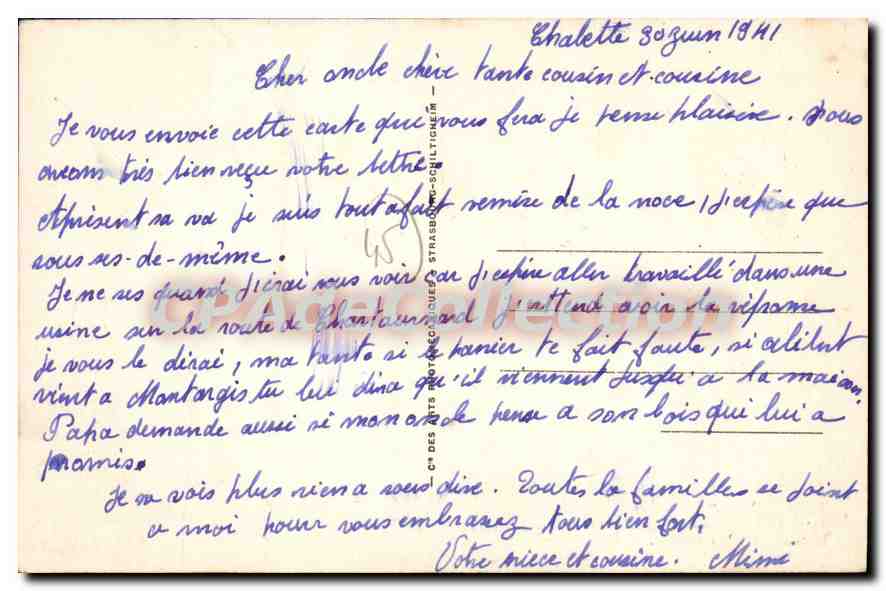 Chalette 30 Juin 1941
Cher oncle chère tante cousin et cousine
Je vous envoie cette carte que vous fera je pense plaisire. Nous
avons très bien reçu votre lettre.
Aprésent sa va je suis tout afait remise de la noce, j'espère que
vous ses-de-même.
Je ne ses quand j'irai vous voir car j'espère aller travaillé dans une
usine sur la route de j'attend avoir la réponse
je vous le dirai, ma tante si le panier te fait faute, si
vint a Montargis tu lui dira qu'il viennent jusqu'a la maison.
Papa demande aussi si mon oncle pense a son bois qui lui a
promis.
Je va vois plus rien a vous dire. Toutes la familles se joint
a moi pour vous embrassez tous bien fort.
Votre niece et cousine. Mimi
45
— Cie DES ARTS PHOTOMÉCANIQUES • STRASBOURG-SCHILTIGHEIM —
CPA Collection